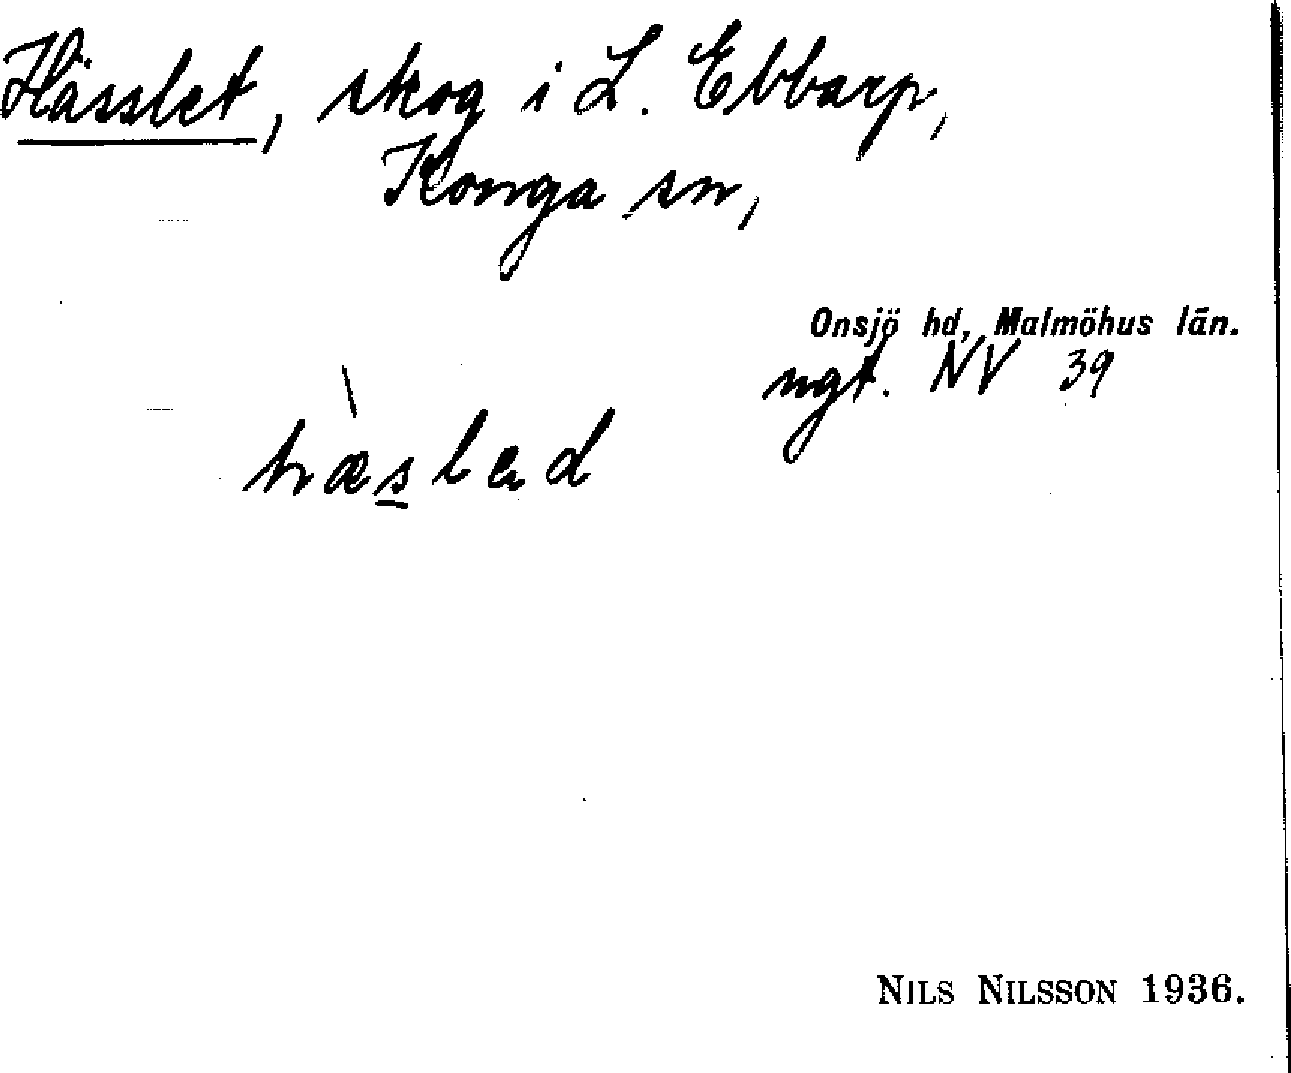 Hässlet, skog i L. Ebbarp,
Konga sn,
Onsjö hd, Malmöhus län.
ngt. NV 39
hæ̀slad
NILS NILSSON 1936.